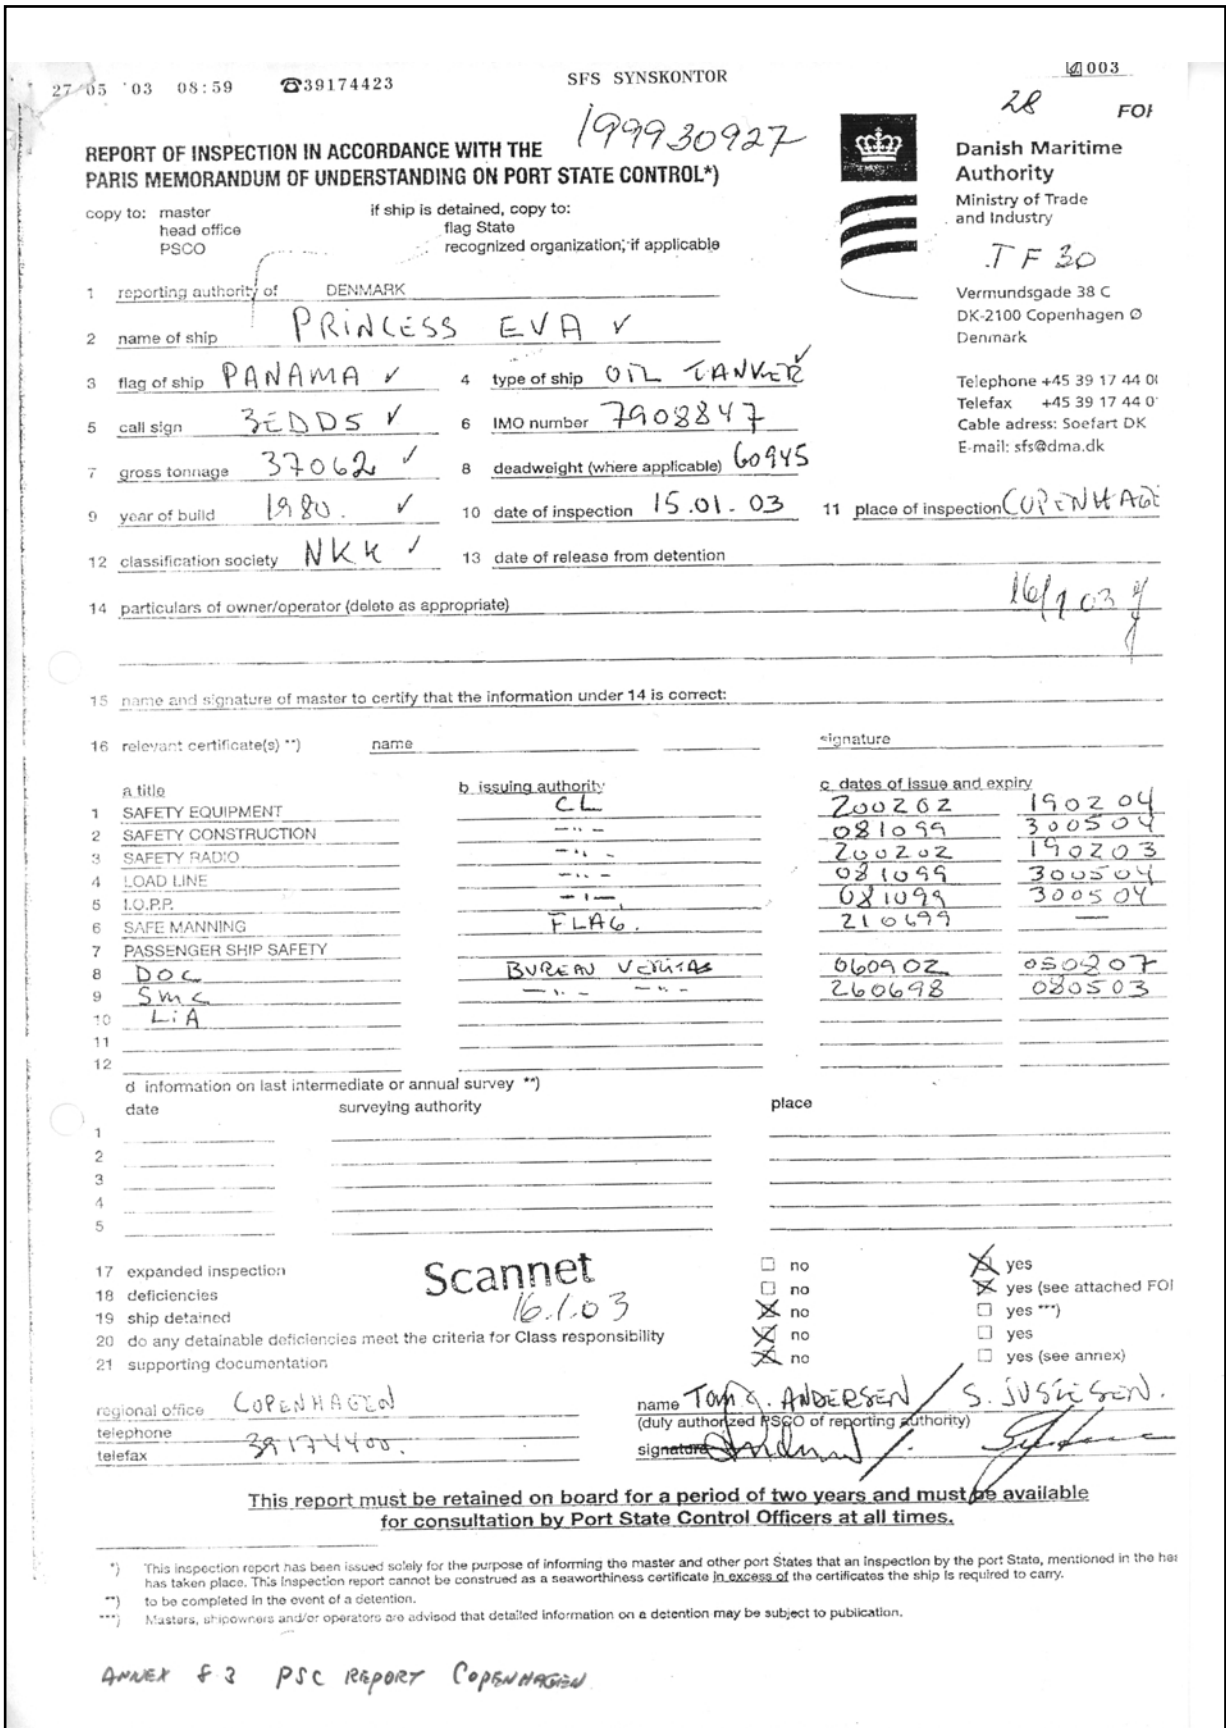 27/05 '03 08:59 ☎39174423 SFS SYNSKONTOR 003
28 FOI
199930927
REPORT OF INSPECTION IN ACCORDANCE WITH THE
PARIS MEMORANDUM OF UNDERSTANDING ON PORT STATE CONTROL*)
Danish Maritime
Authority
Ministry of Trade
and Industry
TF 30
Vermundsgade 38 C
DK-2100 Copenhagen Ø
Denmark
Telephone +45 39 17 44 0
Telefax +45 39 17 44 0
Cable adress: Soefart DK
E-mail: sfs@dma.dk
copy to: master if ship is detained, copy to:
head office flag State
PSCO recognized organization, if applicable
1 reporting authority of DENMARK
2 name of ship PRINCESS EVA ✓
3 flag of ship PANAMA ✓ 4 type of ship OIL TANKER ✓
5 call sign 3EDD5 ✓ 6 IMO number 7908847
7 gross tonnage 37062 ✓ 8 deadweight (where applicable) 60945
9 year of build 1980. ✓ 10 date of inspection 15.01.03 11 place of inspection COPENHAGE
12 classification society NKK ✓ 13 date of release from detention
14 particulars of owner/operator (delete as appropriate) 16/1 03
15 name and signature of master to certify that the information under 14 is correct:
16 relevant certificate(s) **) name signature
a title b issuing authority c dates of issue and expiry
1 SAFETY EQUIPMENT CL 200202 190204
2 SAFETY CONSTRUCTION -"- 081099 300504
3 SAFETY RADIO -"- 200202 190203
4 LOAD LINE -"- 081099 300504
5 I.O.P.P. -"- 081099 300504
6 SAFE MANNING FLAG. 210699 —
7 PASSENGER SHIP SAFETY
8 DOC BUREAU VERITAS 060902 050207
9 SMC -"- -"- 260698 080503
10 LiA
11
12
d information on last intermediate or annual survey **)
date surveying authority place
1
2
3
4
5
17 expanded inspection ☐ no ☒ yes
18 deficiencies ☐ no ☒ yes (see attached FOI
19 ship detained ☒ no ☐ yes ***)
20 do any detainable deficiencies meet the criteria for Class responsibility ☒ no ☐ yes
21 supporting documentation ☒ no ☐ yes (see annex)
Scannet
16.1.03
regional office COPENHAGEN
telephone 39174400.
telefax
name TOM G. ANDERSEN / S. JUSTESEN.
(duly authorized PSCO of reporting authority)
signature
This report must be retained on board for a period of two years and must be available
for consultation by Port State Control Officers at all times.
*) This inspection report has been issued solely for the purpose of informing the master and other port States that an inspection by the port State, mentioned in the hea
has taken place. This inspection report cannot be construed as a seaworthiness certificate in excess of the certificates the ship is required to carry.
**) to be completed in the event of a detention.
***) Masters, shipowners and/or operators are advised that detailed information on a detention may be subject to publication.
ANNEX 8.3 PSC REPORT COPENHAGEN